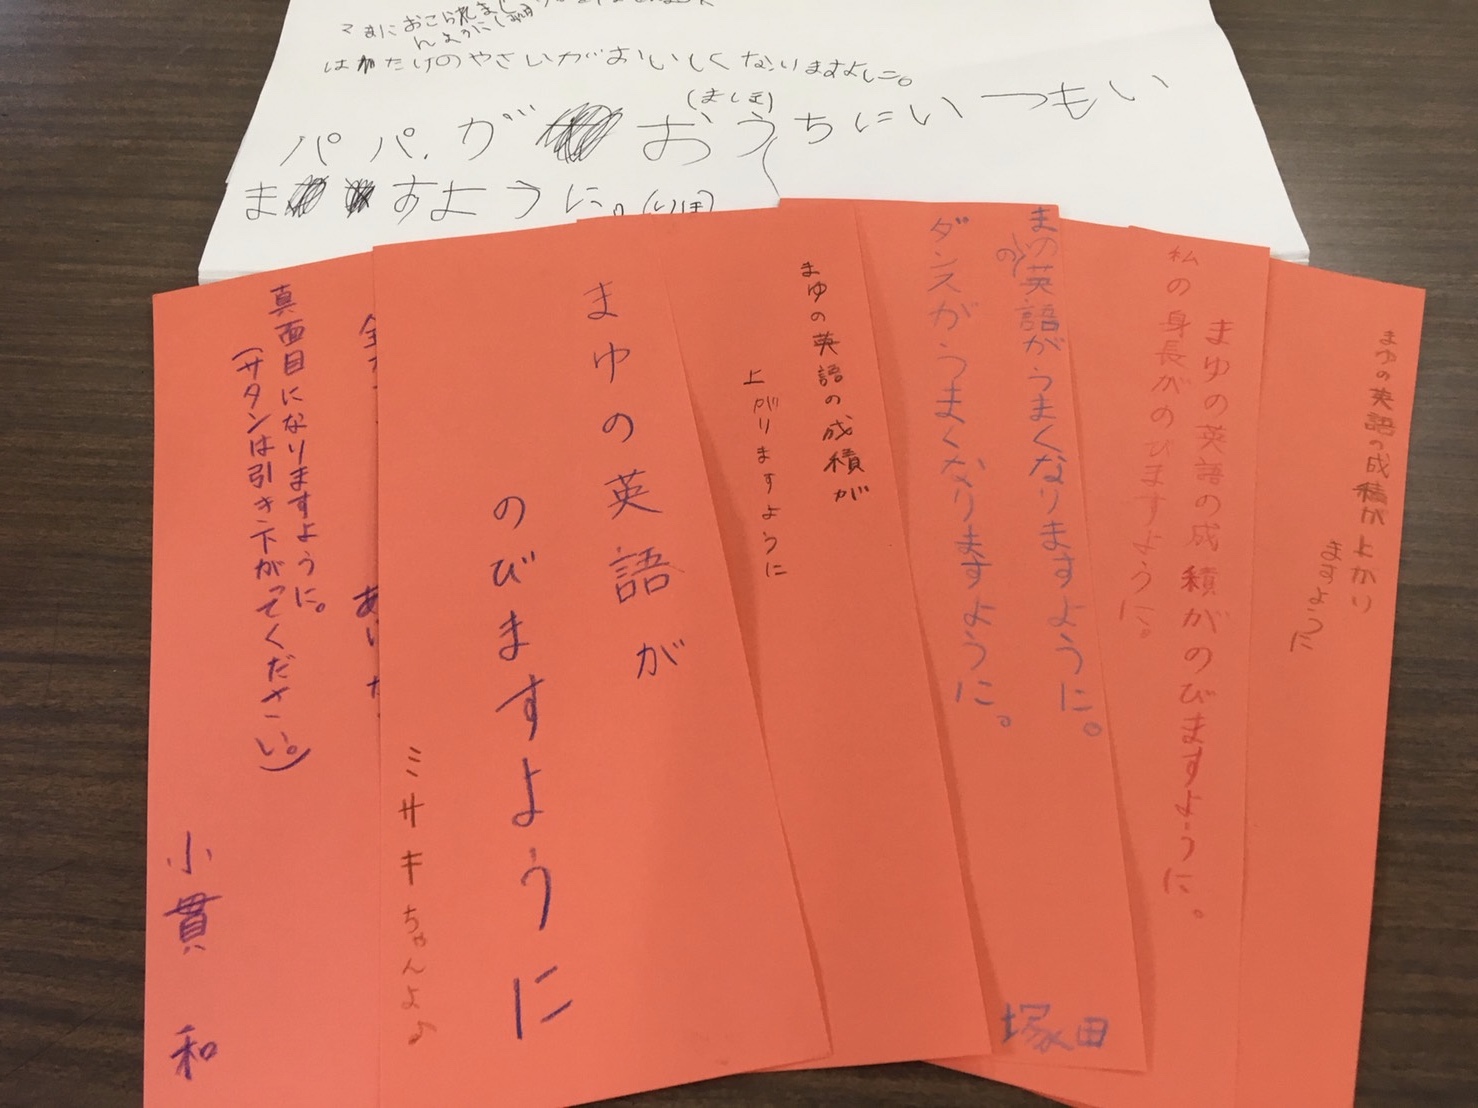 はたけのやさいがおいしくなりますよに。
(まし主)
パパが おうちにいつもい
ますように。(りほ)
真面目になりますように。
(サタンは引き下がってください。)
小貫 和
まゆの英語が
のびますように
ミサキちゃんよ♪
まゆの英語の成積が
上がりますように
まゆの英語がうまくなりますように。
ダンスがうまくなりますように。
塚田
まゆの英語の成積がのびますように。
私の身長がのびますように。
まゆの英語の成積が上がり
ますように